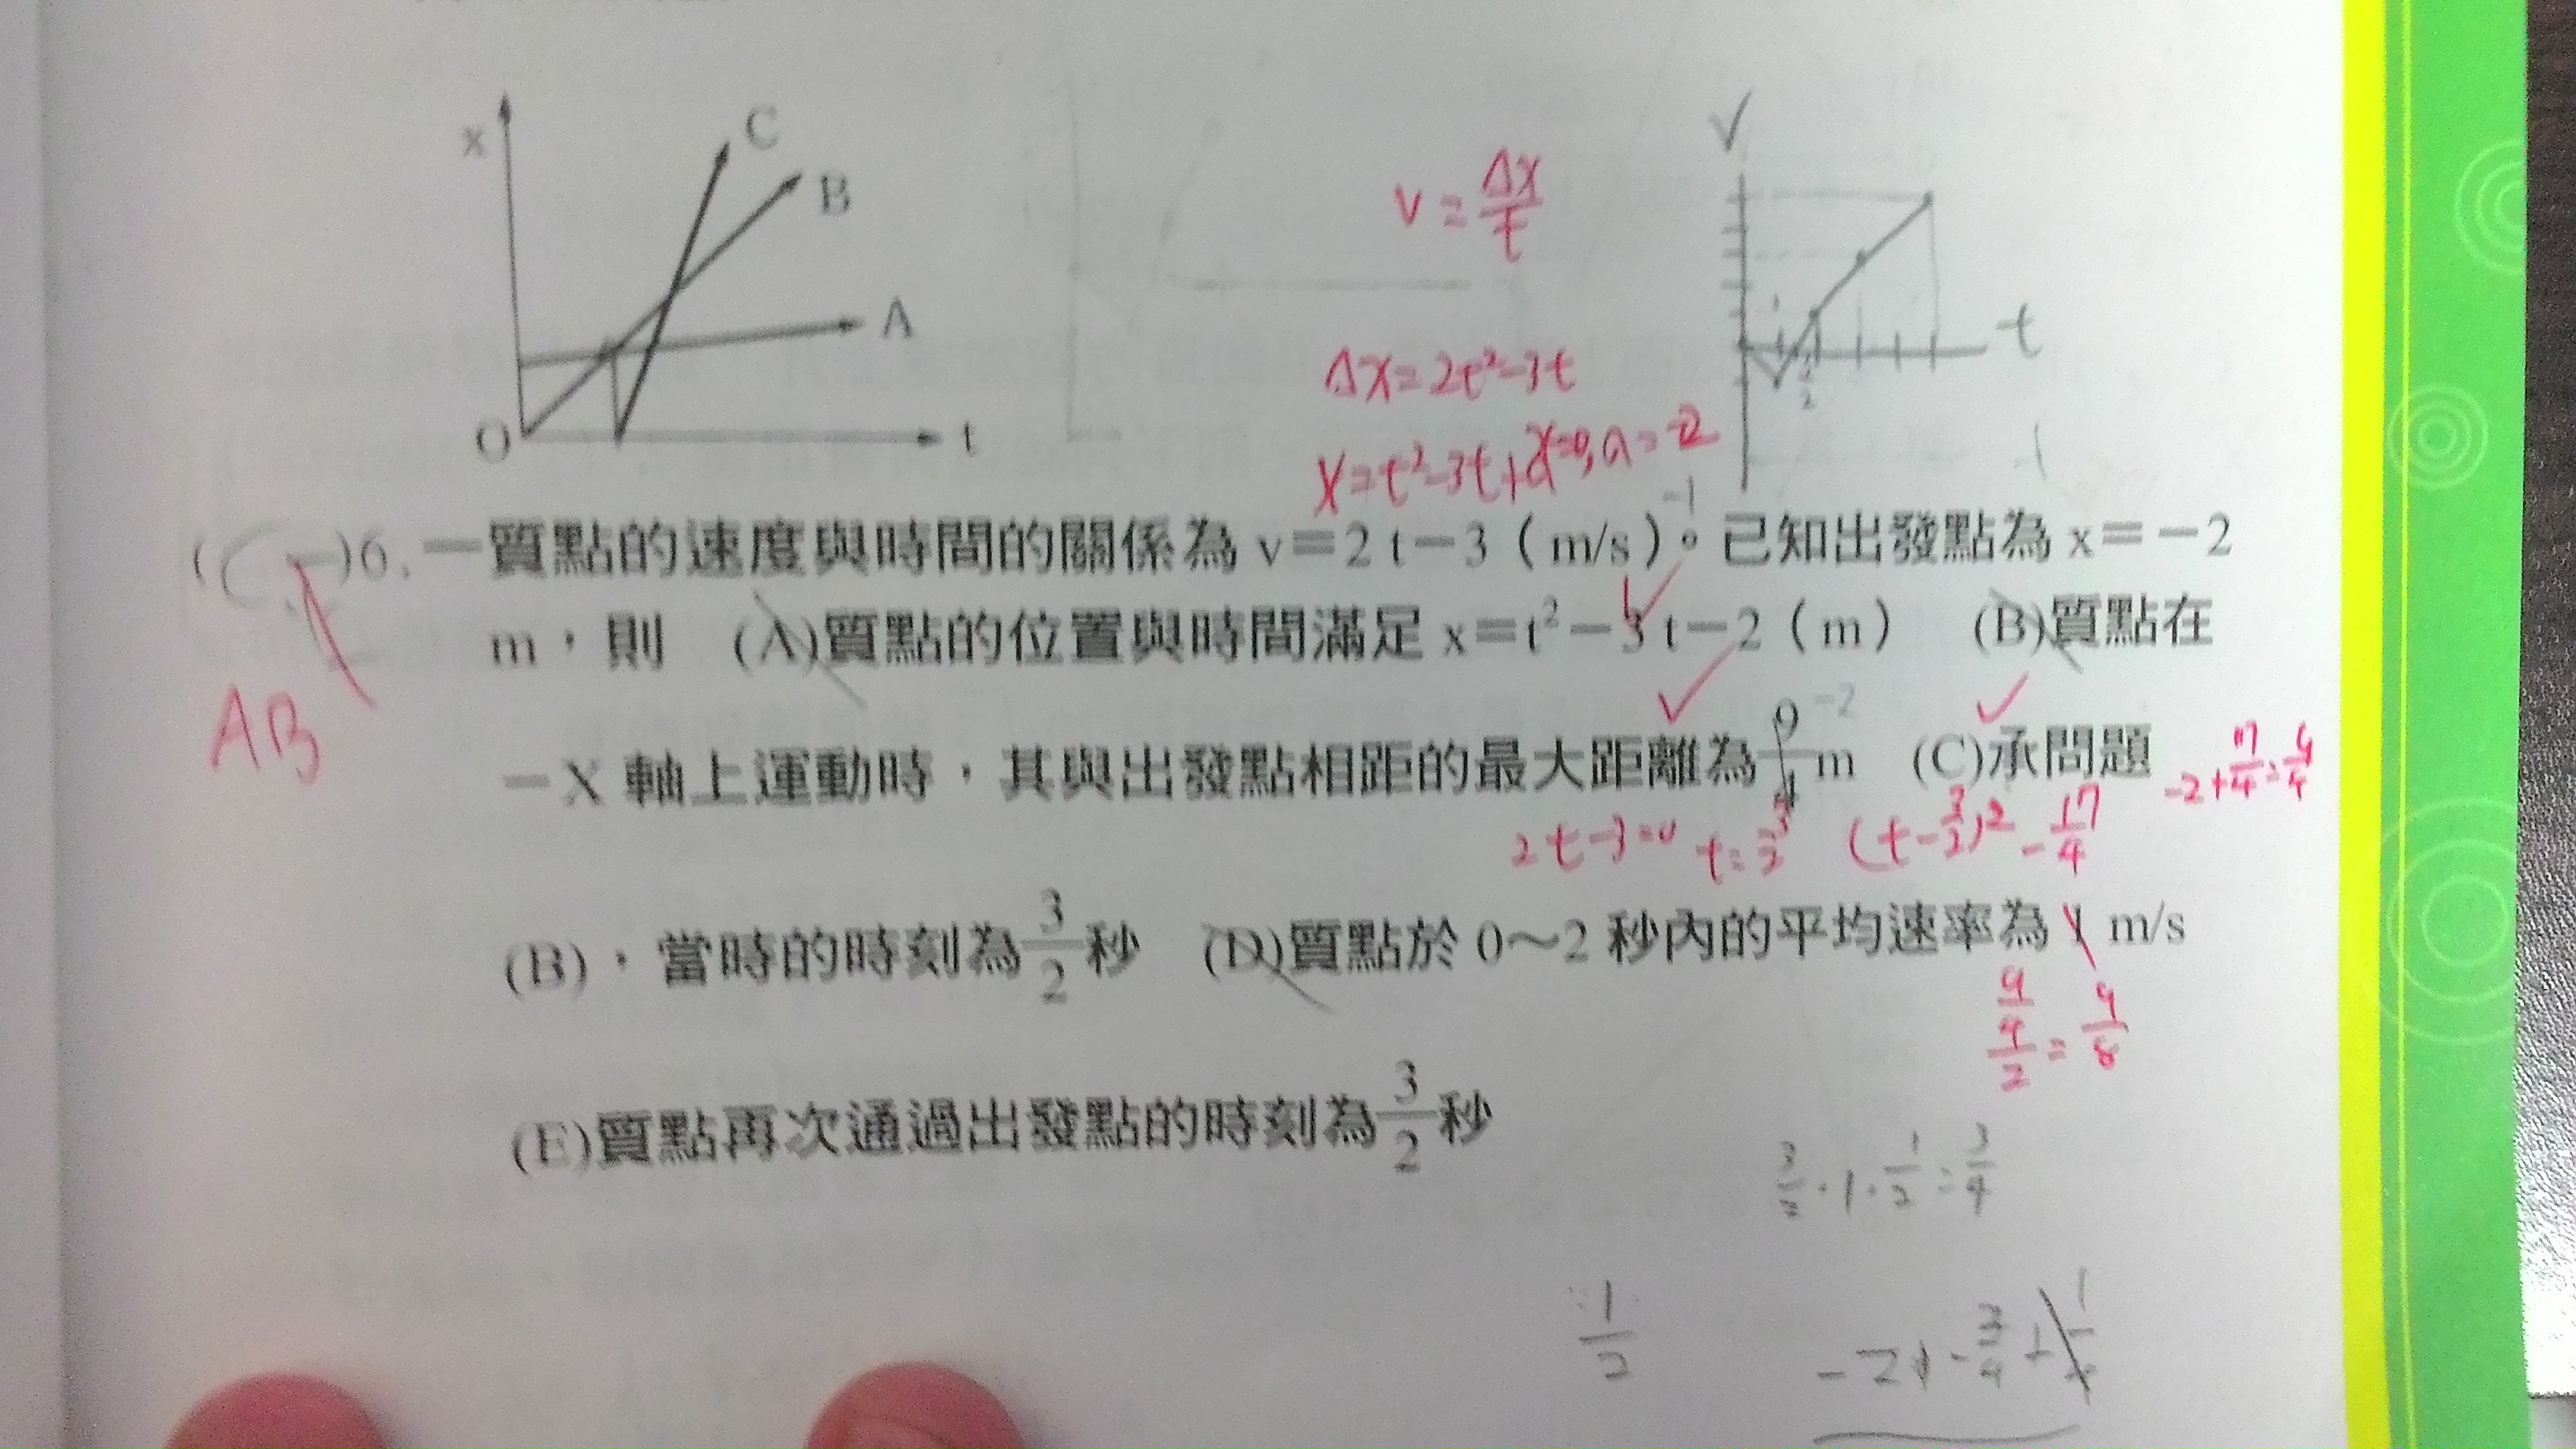 x
C
B
A
O
t
v = Δx/t
v
t
Δx = 2t²-3t
x = t²-3t+a x=0, a=-2
-1
(C )6. 一質點的速度與時間的關係為 v=2 t-3(m/s)。已知出發點為 x=-2
m,則 (A)質點的位置與時間滿足 x=t²-3 t-2(m) (B)質點在
AB
-X 軸上運動時,其與出發點相距的最大距離為 9/4 m (C)承問題
-2
-2+17/4=9/4
2t-3=0 t=3/2 (t-3/2)² - 17/4
(B),當時的時刻為 3/2 秒 (D)質點於 0~2 秒內的平均速率為 1 m/s
9/4/2 = 9/8
(E)質點再次通過出發點的時刻為 3/2 秒
3/2·1·1/2=3/4
1/2